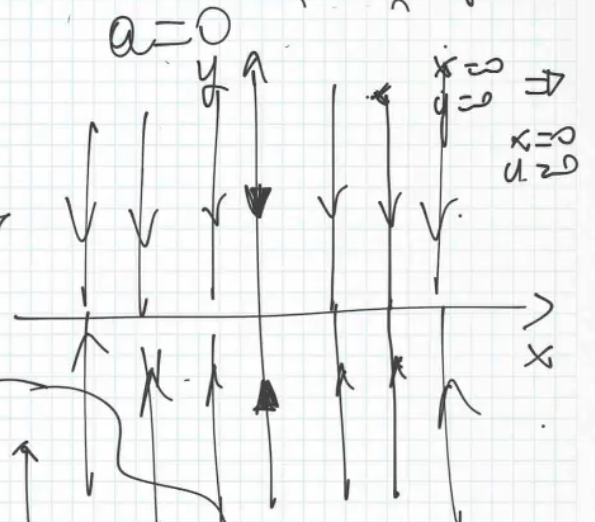 a=0
y
x=0
y=0 ⇒
x=0
x